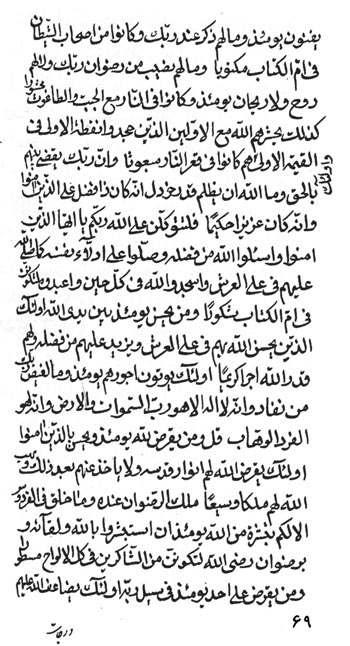 يفنون يومئذ وما لهم ذكر عند ربّك وكانوا من اصحاب الشّيطان
فى امّ الكتاب مكتوبا وما لهم نصيب من رضوان ربّك ولا لهم
روح ولا ريحان يومئذ وكانوا فى النّار مع الجبت والطاغوت محشورا
كذلك يحشرهم الله مع الاوّلين الّذين عبدوا نقطة الاولى فى
القيمة الاولى هم كانوا فى قعر النّار مسجونا وانّ ربّك يقضى بينهم
بالحق وما الله ان يظلم قدر خردل انّه كان ذا فضل على الّذين امنوا
وانّه كان عزيزا حكيما فلتتوكّلن على الله ربّكم يا ايّها الّذين
امنوا واسئلوا الله من فضله وصلّوا على اولآء نفسه كما صلّى الله
عليهم فى على العرش واسجدوا الله فى كلّ حين واعبدوه ولتكونن
فى امّ الكتاب شكورا ومن يحسن يومئذ بين يدى الله اولئك
الّذين يحسن الله بهم فى على العرش ويزيد عليهم من فضله ولهم
قدر الله اجرا كريما اولئك يؤتون اجورهم يومئذ وما لفيض ربّك
من نفاد وانّه لا اله الا هو ربّ السّموات والارض وانّه لهو
الفرد الوهاب قل ومن يقرض لله يومئذ ويحسن بالّذين امنوا
اولئك يقرض الله لهم انوار قدسه ولا ياخذ عنهم بعد ذلك وهب
الله لهم ملكا وسيعا ملك الرضوان عنده وما خلق فى الفردوس
الا لكم بشرة من الله يومئذ ان استبشروا بالله ولقائه و
برضوان رضى الله لتكونن من الشّاكرين فى كلّ الالواح مسطورا
ومن يقرض على احد يومئذ فى سبيل ربّه اولئك يضاعف الله عليهم
۶۹
درجات